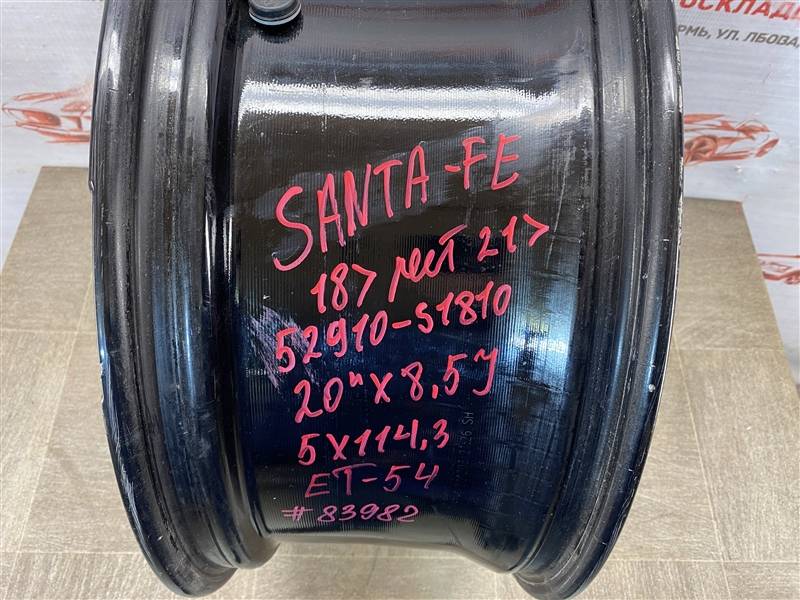 ОСКЛАДИ
РМЬ, УЛ. ЛБОВА,
SANTA-FE
18> рест 21>
52910-S1810
20"X8,5J
5X114,3
ET-54
#83982